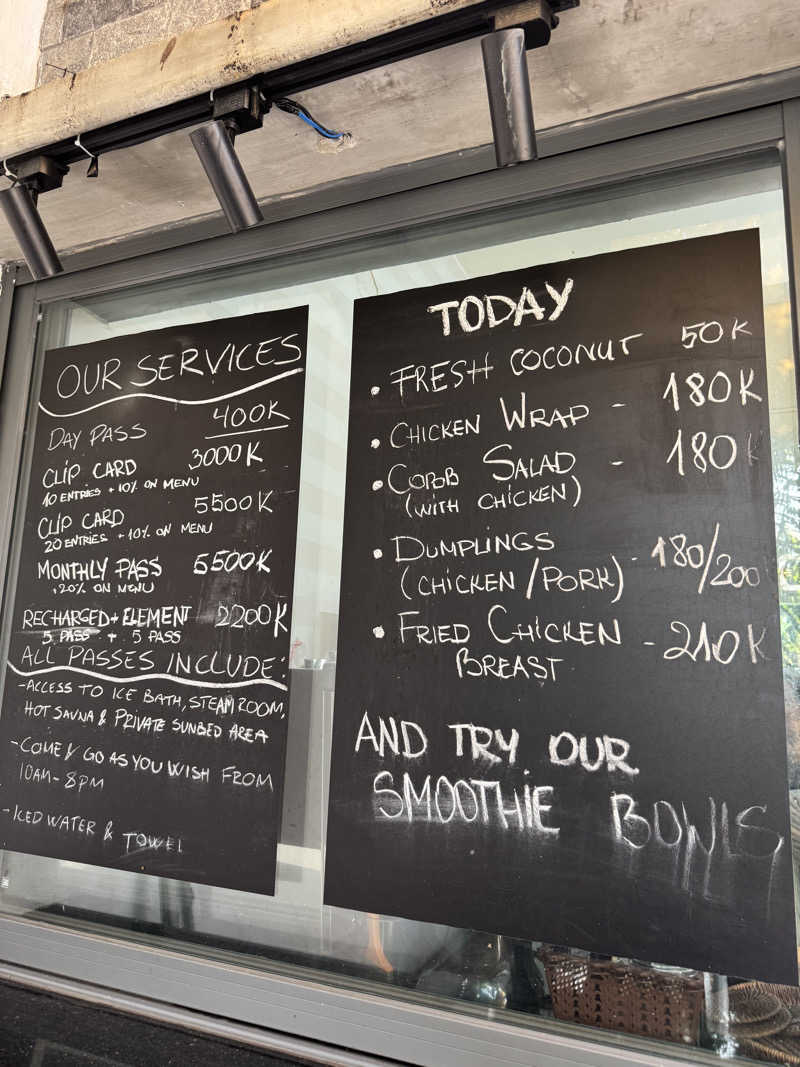 OUR SERVICES
DAY PASS 400K
CLIP CARD 3000K
10 ENTRIES + 10% ON MENU
CLIP CARD 5500K
20 ENTRIES + 10% ON MENU
MONTHLY PASS 5500K
+20% ON MENU
RECHARGED + ELEMENT 2200K
5 PASS + 5 PASS
ALL PASSES INCLUDE:
- ACCESS TO ICE BATH, STEAM ROOM,
HOT SAUNA & PRIVATE SUNBED AREA
- COME & GO AS YOU WISH FROM
10AM - 8PM
- ICED WATER & TOWEL
TODAY
• FRESH COCONUT 50K
• CHICKEN WRAP - 180K
• COBB SALAD - 180K
(WITH CHICKEN)
• DUMPLINGS - 180/200
(CHICKEN/PORK)
• FRIED CHICKEN - 210K
BREAST
AND TRY OUR
SMOOTHIE BOWLS